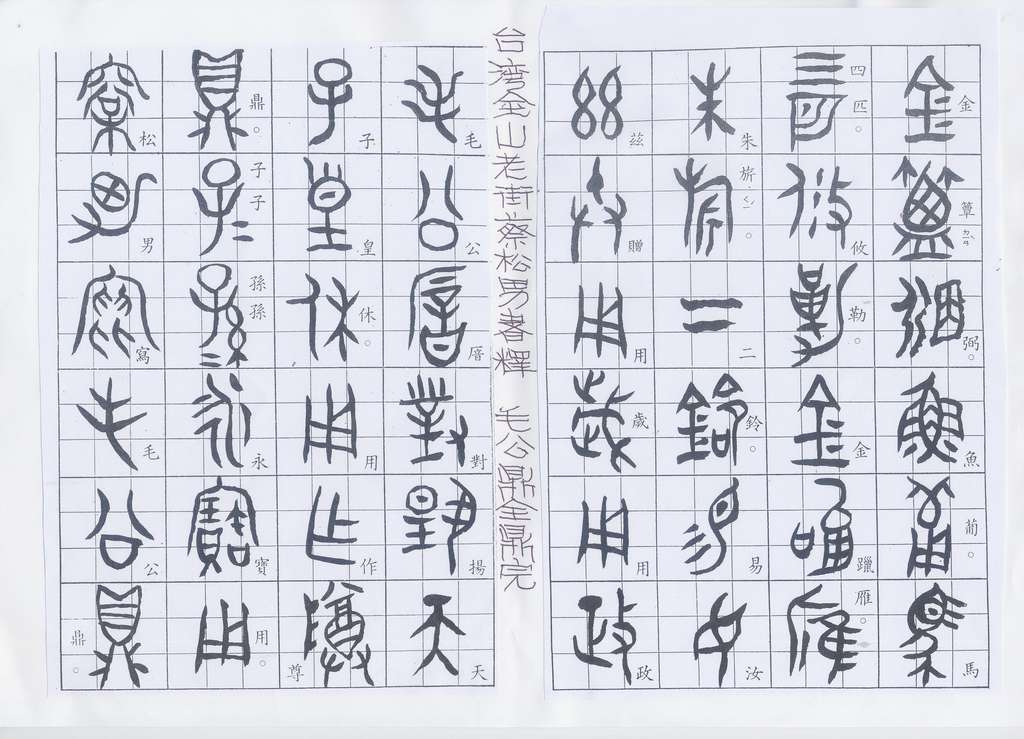 金簟弼。魚葡。馬
四匹。攸勒。金蹥雁。
朱旅。二鈴。易汝
茲贈用歲用政
台灣金山老街蔡松男書釋 毛公鼎全鼎完
毛公厝對揚天
子皇休。用作尊
鼎。子子孫孫永寶用。
松男寫毛公鼎。